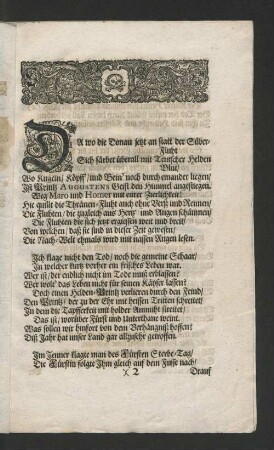 DA wo die Donau jetzt an statt der Silber-
Fluht
Sich färbet überall mit Teutscher Helden
Blut/
Wo Kugeln/ Köpff/ und Bein' noch durch einander liegen/
Ist Printz AUGUSTENS Geist den Himmel angestiegen.
Weg Maro und Homer mit eurer Zierlichkeit!
Hie quillt die Thränen-Fluht auch ohne Verß und Reimen/
Die Fluhten/ die zugleich aus Hertz' und Augen schäumen/
Die Fluhten die sich jetzt ergiessen weit und breit/
Von welchen/ daß sie sind in dieser Zeit gewesen/
Die Nach-Welt ehmals wird mit nassen Augen lesen.
Ich klage nicht den Tod/ noch die gemeine Schaar/
In welcher kurtz vorher ein frisches Leben war.
Wer ist/ der endlich nicht im Tod mußt' erblassen?
Wer wolt' das Leben nicht für seinen Käyser lassen?
Doch einen Helden-Printz verlieren durch den Feind/
Den Printz/ der zu der Ehr mit heissen Tritten schreitet/
In dem die Tapfferkeit mit holder Anmuht streitet/
Das ist/ worüber Fürst und Unterthane weint.
Was sollen wir hinfort von dem Verhängnuß hoffen?
Diß Jahr hat unser Land gar allzusehr getroffen.
Im Jenner klagte man des Fürsten Sterbe-Tag/
Die Fürstin folgte Ihm gleich auf dem Fusse nach/
)( 2
Drauf